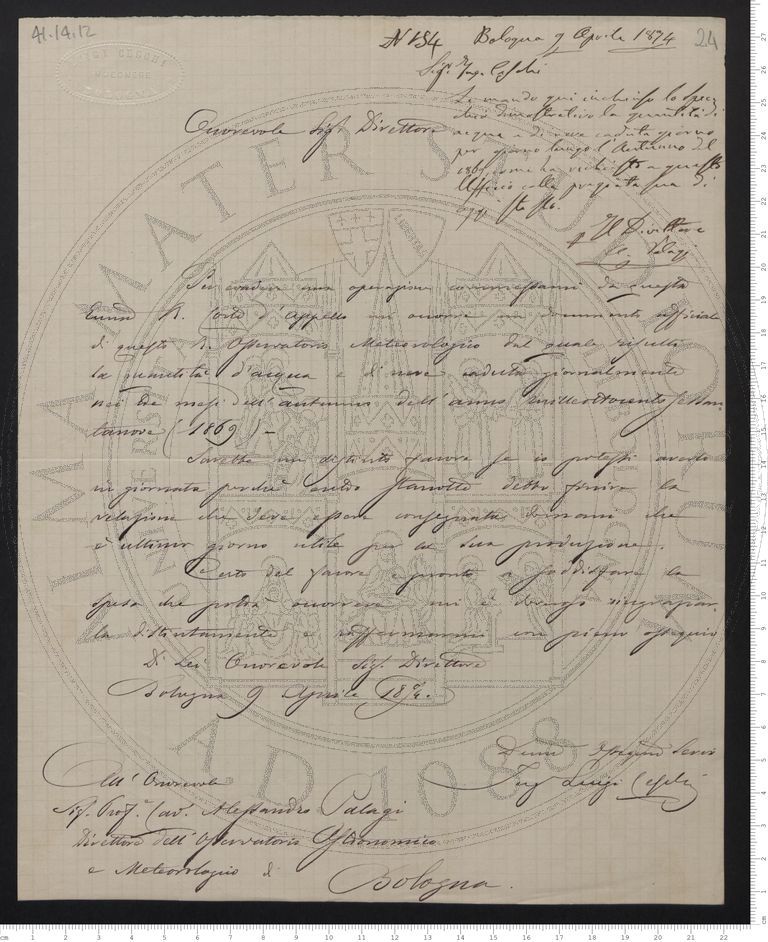 41.14.12
24
N 154 Bologna 9 Aprile 1874
Le mando qui inchiuso lo spec
chio dimostrativo la quantità di
acqua e di neve caduta giorno
per giorno lungo l'Autunno del
1869, come ha richiesto a questo
Ufficio colla pregiata sua di
oggi stesso.
Il Direttore
Palagi
Onorevole Sigr Direttore
Per evadere una operazione commessami da questa
R. Corte d'Appello mi occorre un documento ufficiale
di questo R. Osservatorio Meteorologico dal quale risulti
la quantità d'acqua e di neve caduta giornalmente
nei tre mesi dell'autunno dell'anno milleottocento sessan
tanove (1869) –
Sarebbe un distinto favore se io potessi averlo
in giornata perché entro stanotte debbo finire la
relazione che deve essere consegnata domani che
è ultimo giorno utile per la sua produzione.
Certo del favore e pronto a soddisfare la
spesa che potrà occorrere mi è d'uopo ringraziar
la distintamente e raffermarmi con pieno ossequio
Di Lei Onorevole Sigr. Direttore
Bologna 9 Aprile 1874.
Servo
Ing Luigi
All' Onorevole
Sig. Prof. Cav. Alessandro Palagi
Direttore dell'Osservatorio Astronomico
e Meteorologico di
Bologna.
ALMA MATER STUDIORUM
A.D. 1088